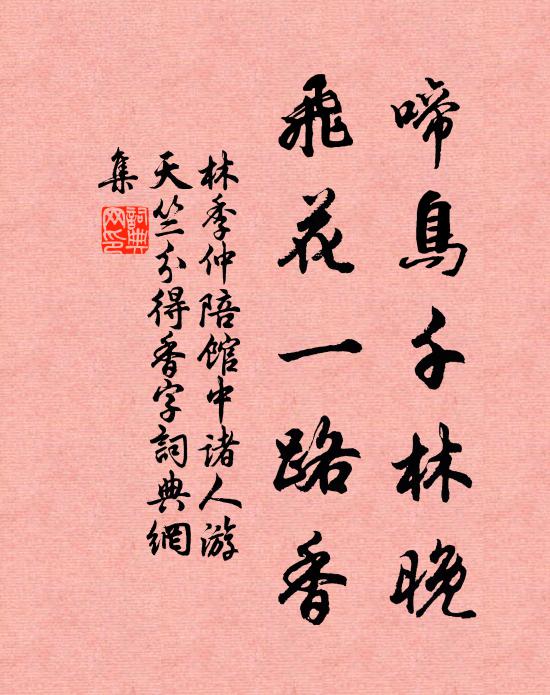 啼鳥千林晚
飛花一路香
林季仲陪館中諸人游
天竺分得香字詞典網
集
詞典網印